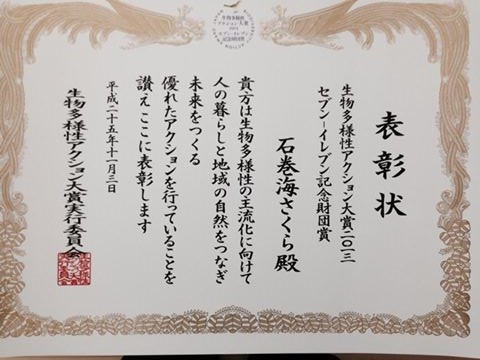 生物多様性
アクション大賞
2013
セブン-イレブン
記念財団賞
表彰状
生物多様性アクション大賞二〇一三
セブン-イレブン記念財団賞
石巻海さくら 殿
貴方は生物多様性の主流化に向けて
人の暮らしと地域の自然をつなぎ
未来をつくる
優れたアクションを行っていることを
讃え ここに表彰します
平成二十五年十一月三日
生物多様性アクション大賞実行委員会